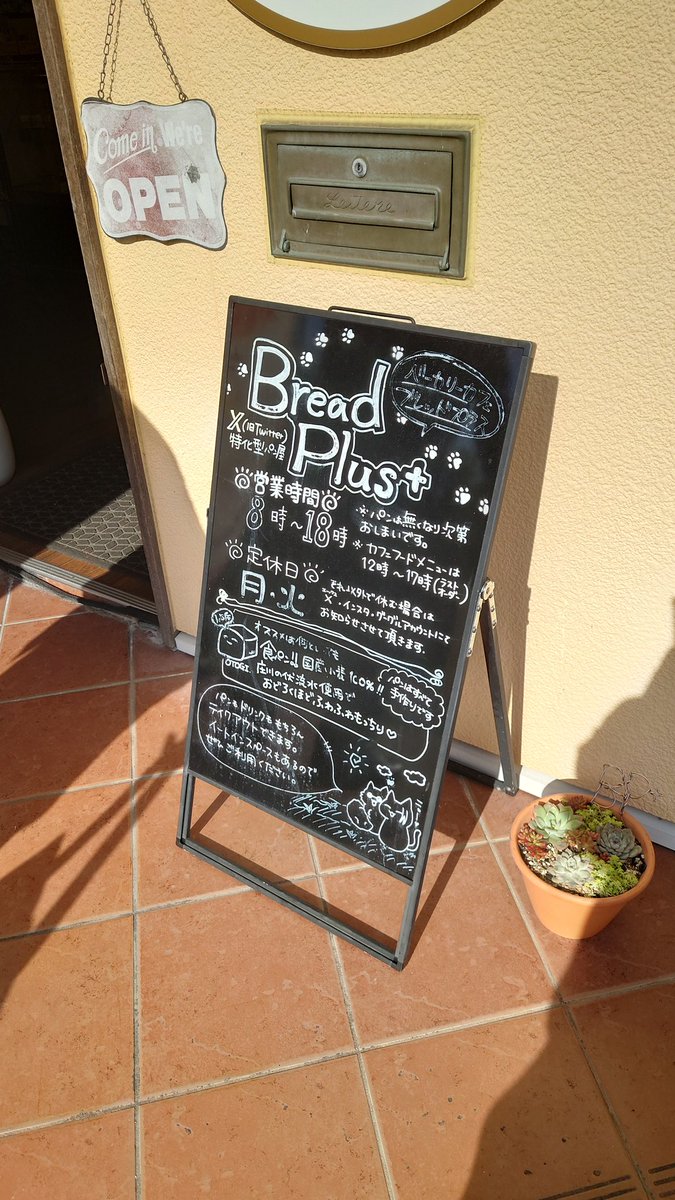 Come in We're
OPEN
Bread
Plus+
ベーカリーカフェ
ブレッドプラス
X(旧Twitter)
特化型パン屋
営業時間
8時〜18時
※パンは無くなり次第
おしまいです。
※カフェフードメニューは
12時〜17時(ラスト
オーダー)
定休日
月・火
それ以外で休む場合は
X・インスタ・グーグルアカウントにて
お知らせさせて頂きます。
オススメは何といっても
食パン!!国産小麦100%!!
庄川の伏流水使用で
おどろくほど、ふわふわもっちり♡
パンはすべて
手作りです
パンもドリンクももちろん
テイクアウトできます。
イートインスペースもあるので
ぜひご利用ください。